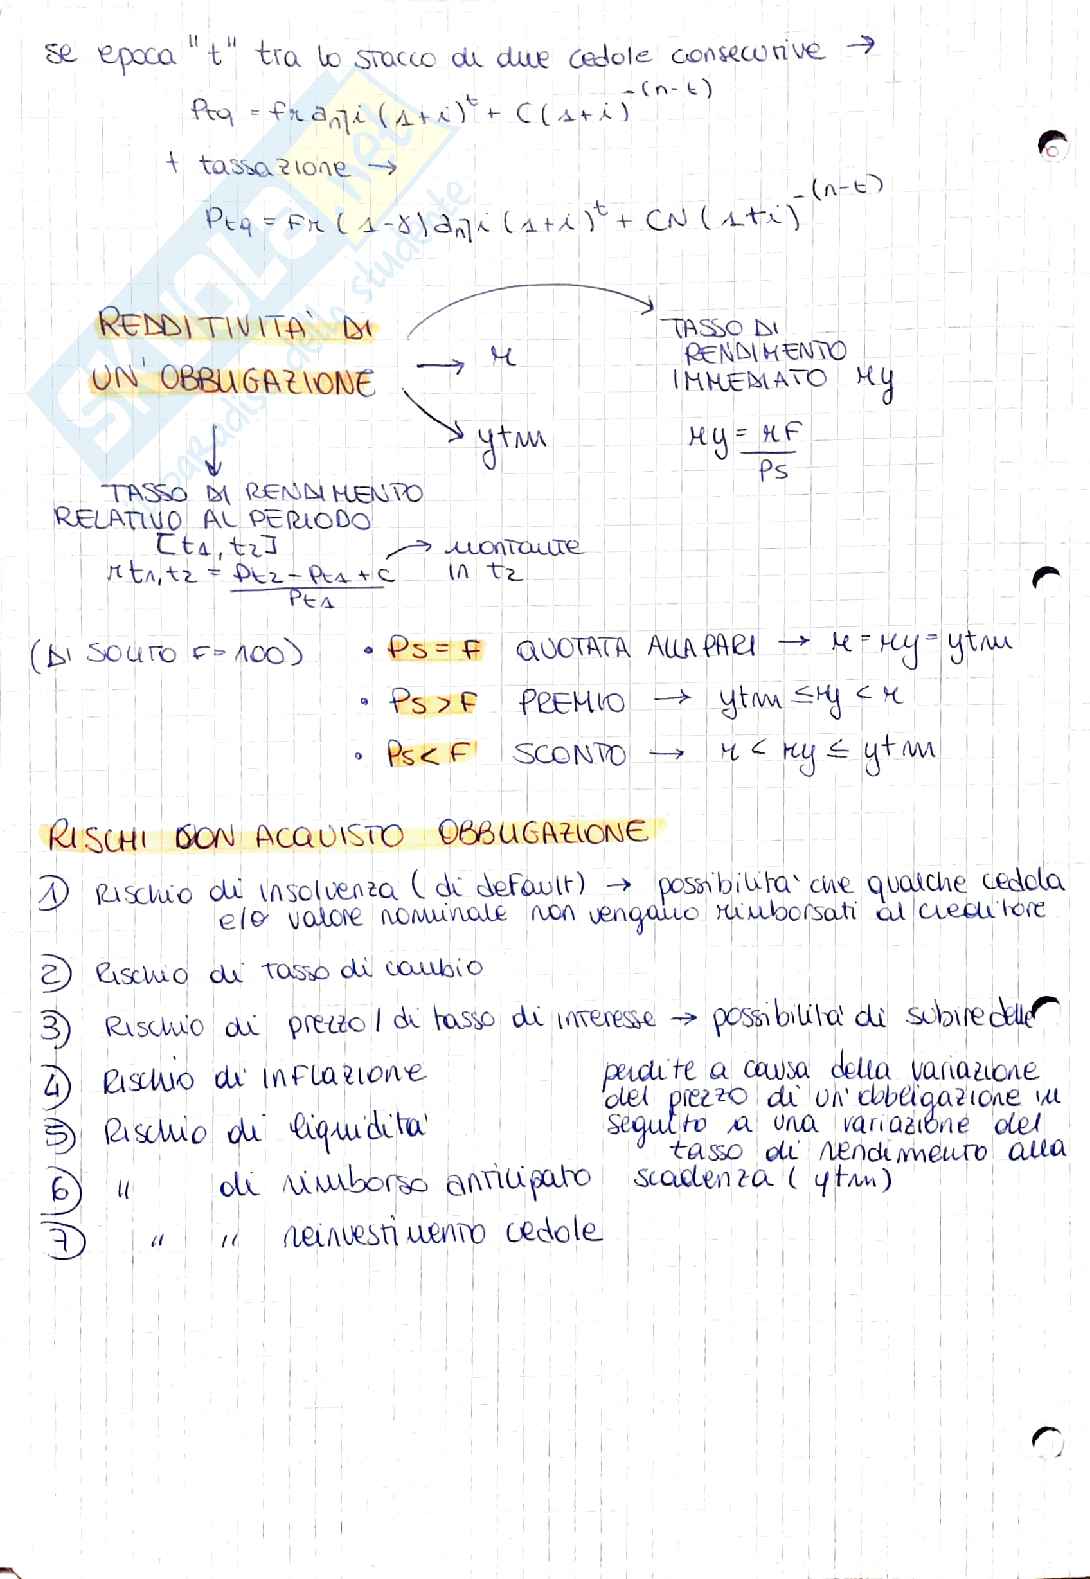 se epoca "t" tra lo stacco di due cedole consecutive →
Ptq = Fr a n⌉i (1+i)^t + C(1+i)^-(n-t)
+ tassazione →
Ptq = Fr (1-γ) a n⌉i (1+i)^t + CN (1+i)^-(n-t)
REDDITIVITA' DI
UN'OBBLIGAZIONE
→ r
→ ytm
TASSO DI
RENDIMENTO
IMMEDIATO ry
ry = rF / Ps
TASSO DI RENDIMENTO
RELATIVO AL PERIODO
[t1, t2]
rt1,t2 = Pt2 - Pt1 + C / Pt1
→ montante
in t2
(DI SOLITO F=100)
• Ps = F QUOTATA ALLA PARI → r = ry = ytm
• Ps > F PREMIO → ytm ≤ ry < r
• Ps < F SCONTO → r < ry ≤ ytm
RISCHI CON ACQUISTO OBBLIGAZIONE
1) Rischio di insolvenza (di default) → possibilita' che qualche cedola
e/o valore nominale non vengano rimborsati al creditore
2) Rischio di tasso di cambio
3) Rischio di prezzo / di tasso di interesse → possibilita' di subire delle
perdite a causa della variazione
del prezzo di un'obbligazione in
seguito a una variazione del
tasso di rendimento alla
scadenza (ytm)
4) Rischio di inflazione
5) Rischio di liquidita'
6) " di rimborso anticipato
7) " " reinvestimento cedole
SKUOLA.net
il paradiso dello studente